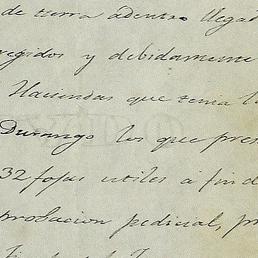 de tierra adentro llegad
regidos y debidamente
Haciendas que tenia l
Durango los que pres
32 fojas utiles a fin d
probacion pedicial, pr